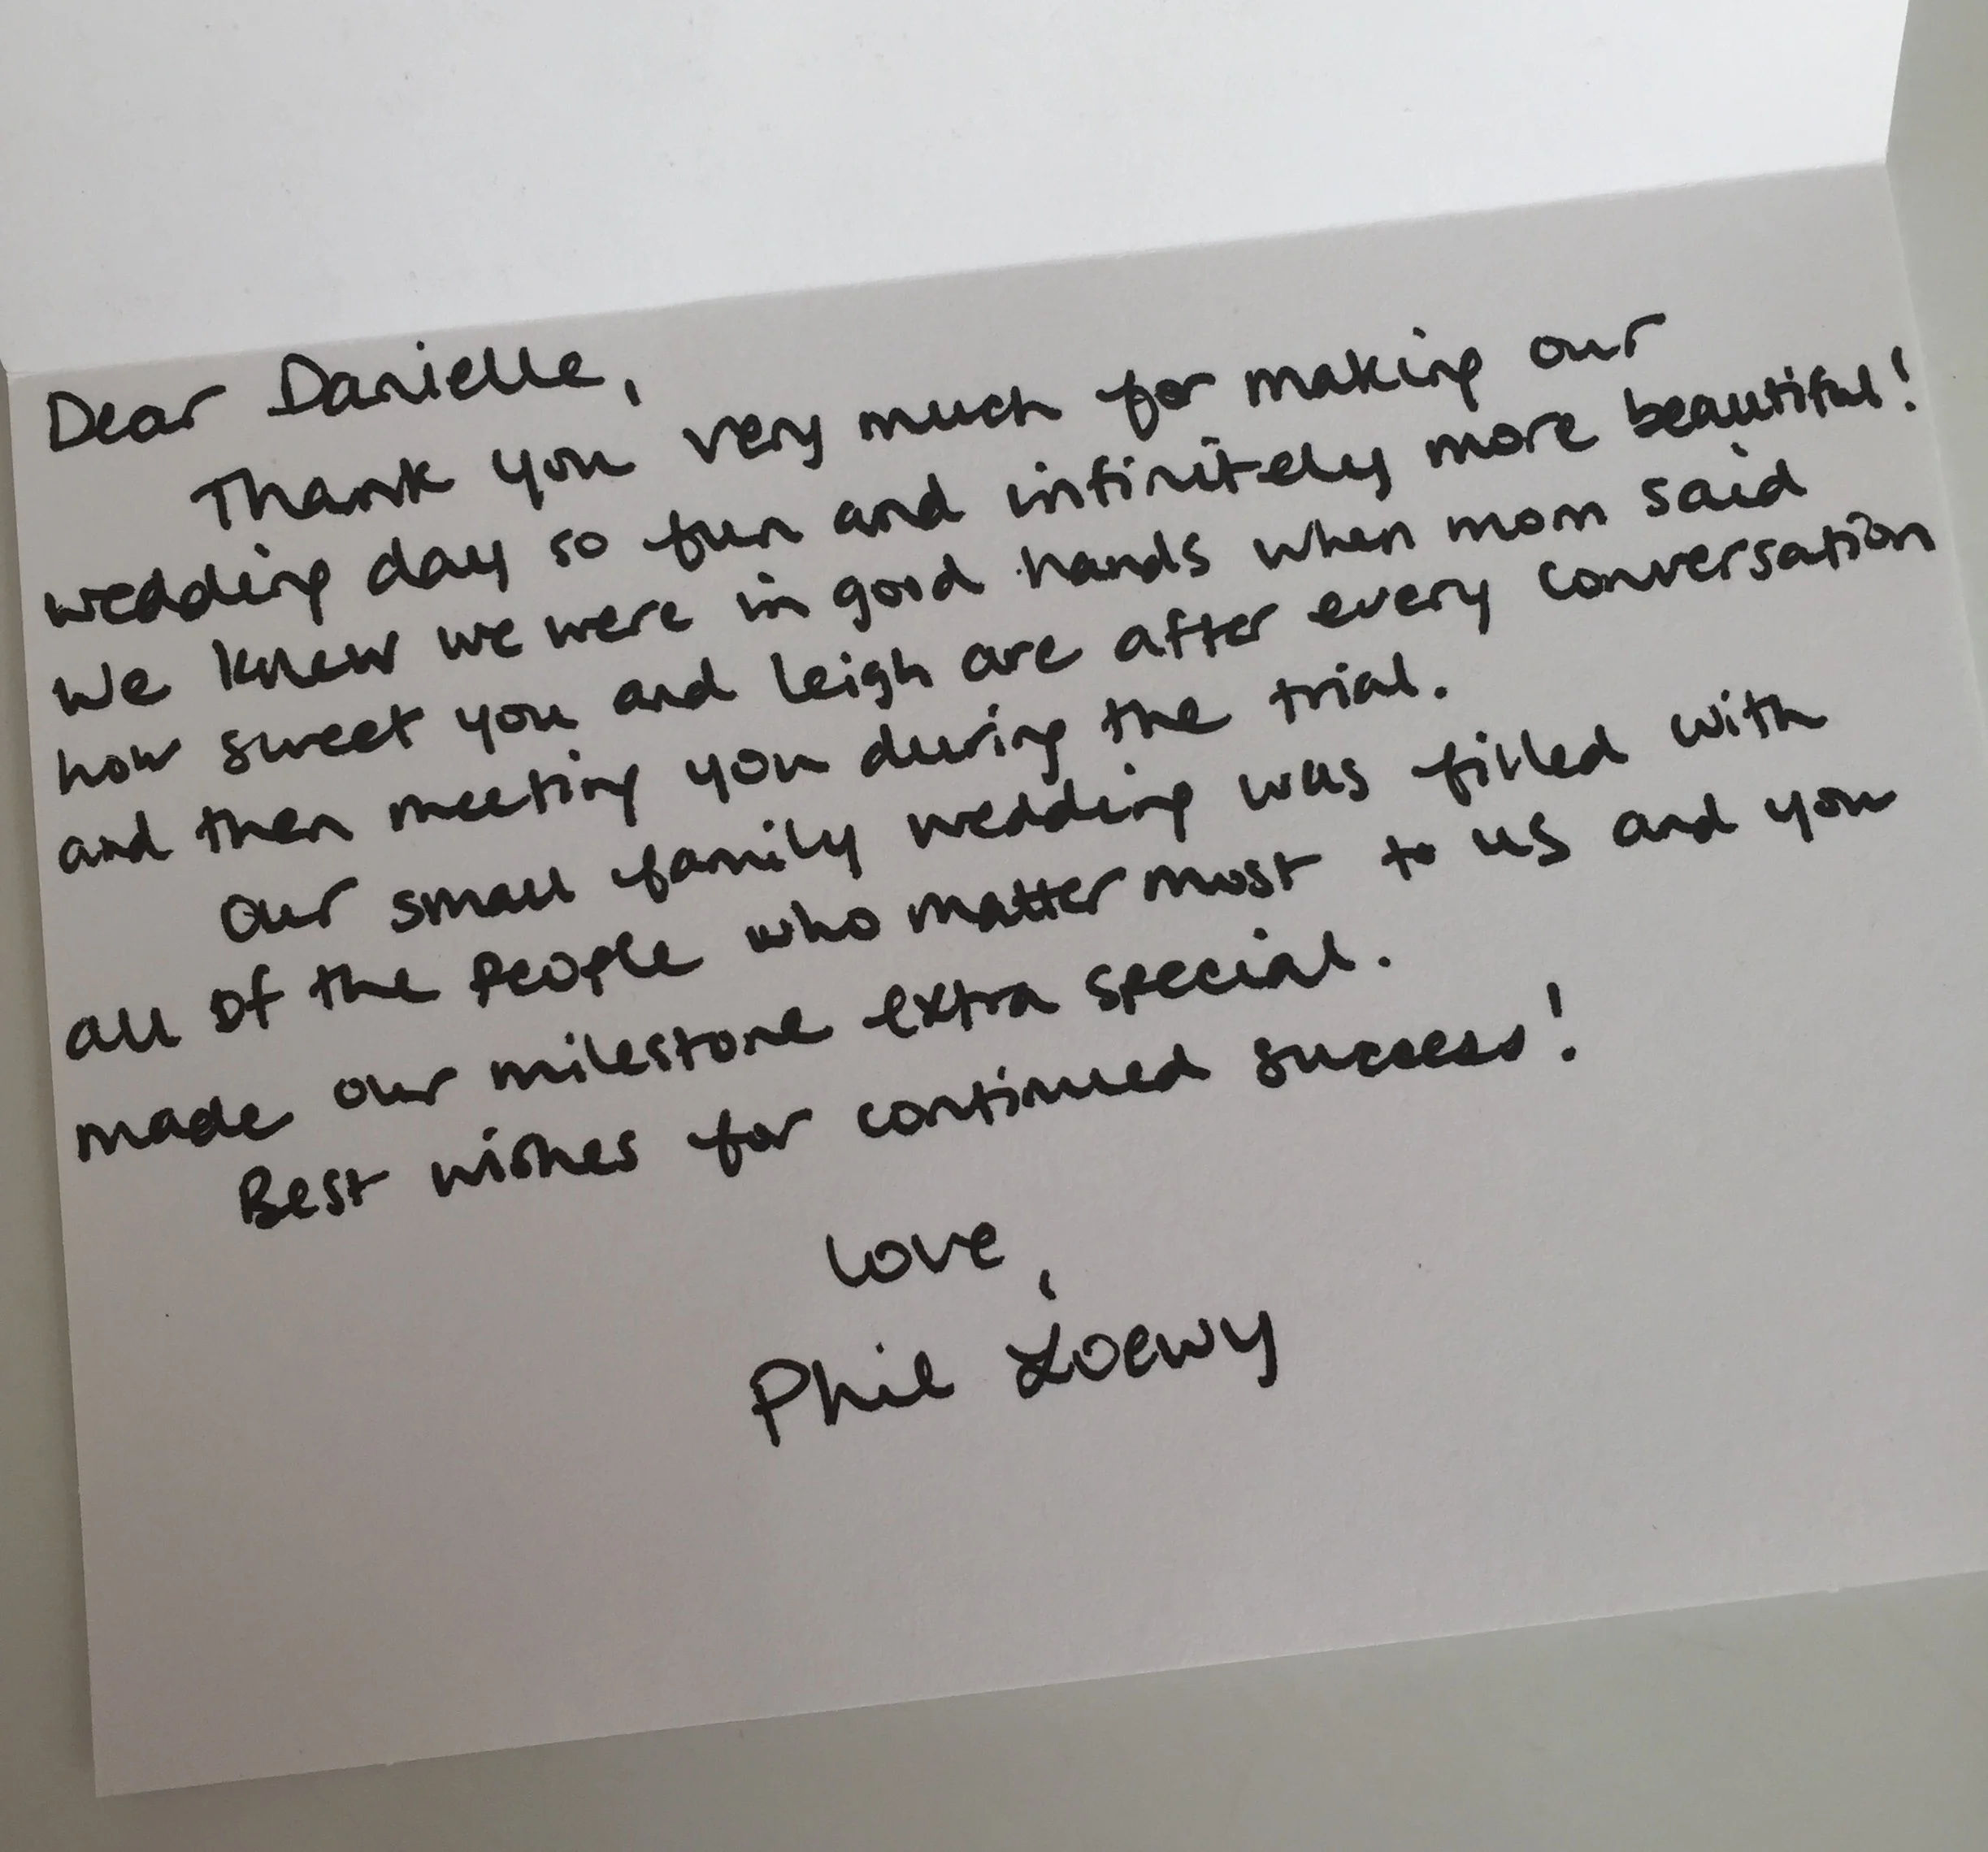 Dear Danielle,
Thank you very much for making our
wedding day so fun and infinitely more beautiful!
We knew we were in good hands when mom said
how sweet you and Leigh are after every conversation
and then meeting you during the trial.
Our small family wedding was filled with
all of the people who matter most to us and you
made our milestone extra special.
Best wishes for continued success!
Love,
Phil Loewy